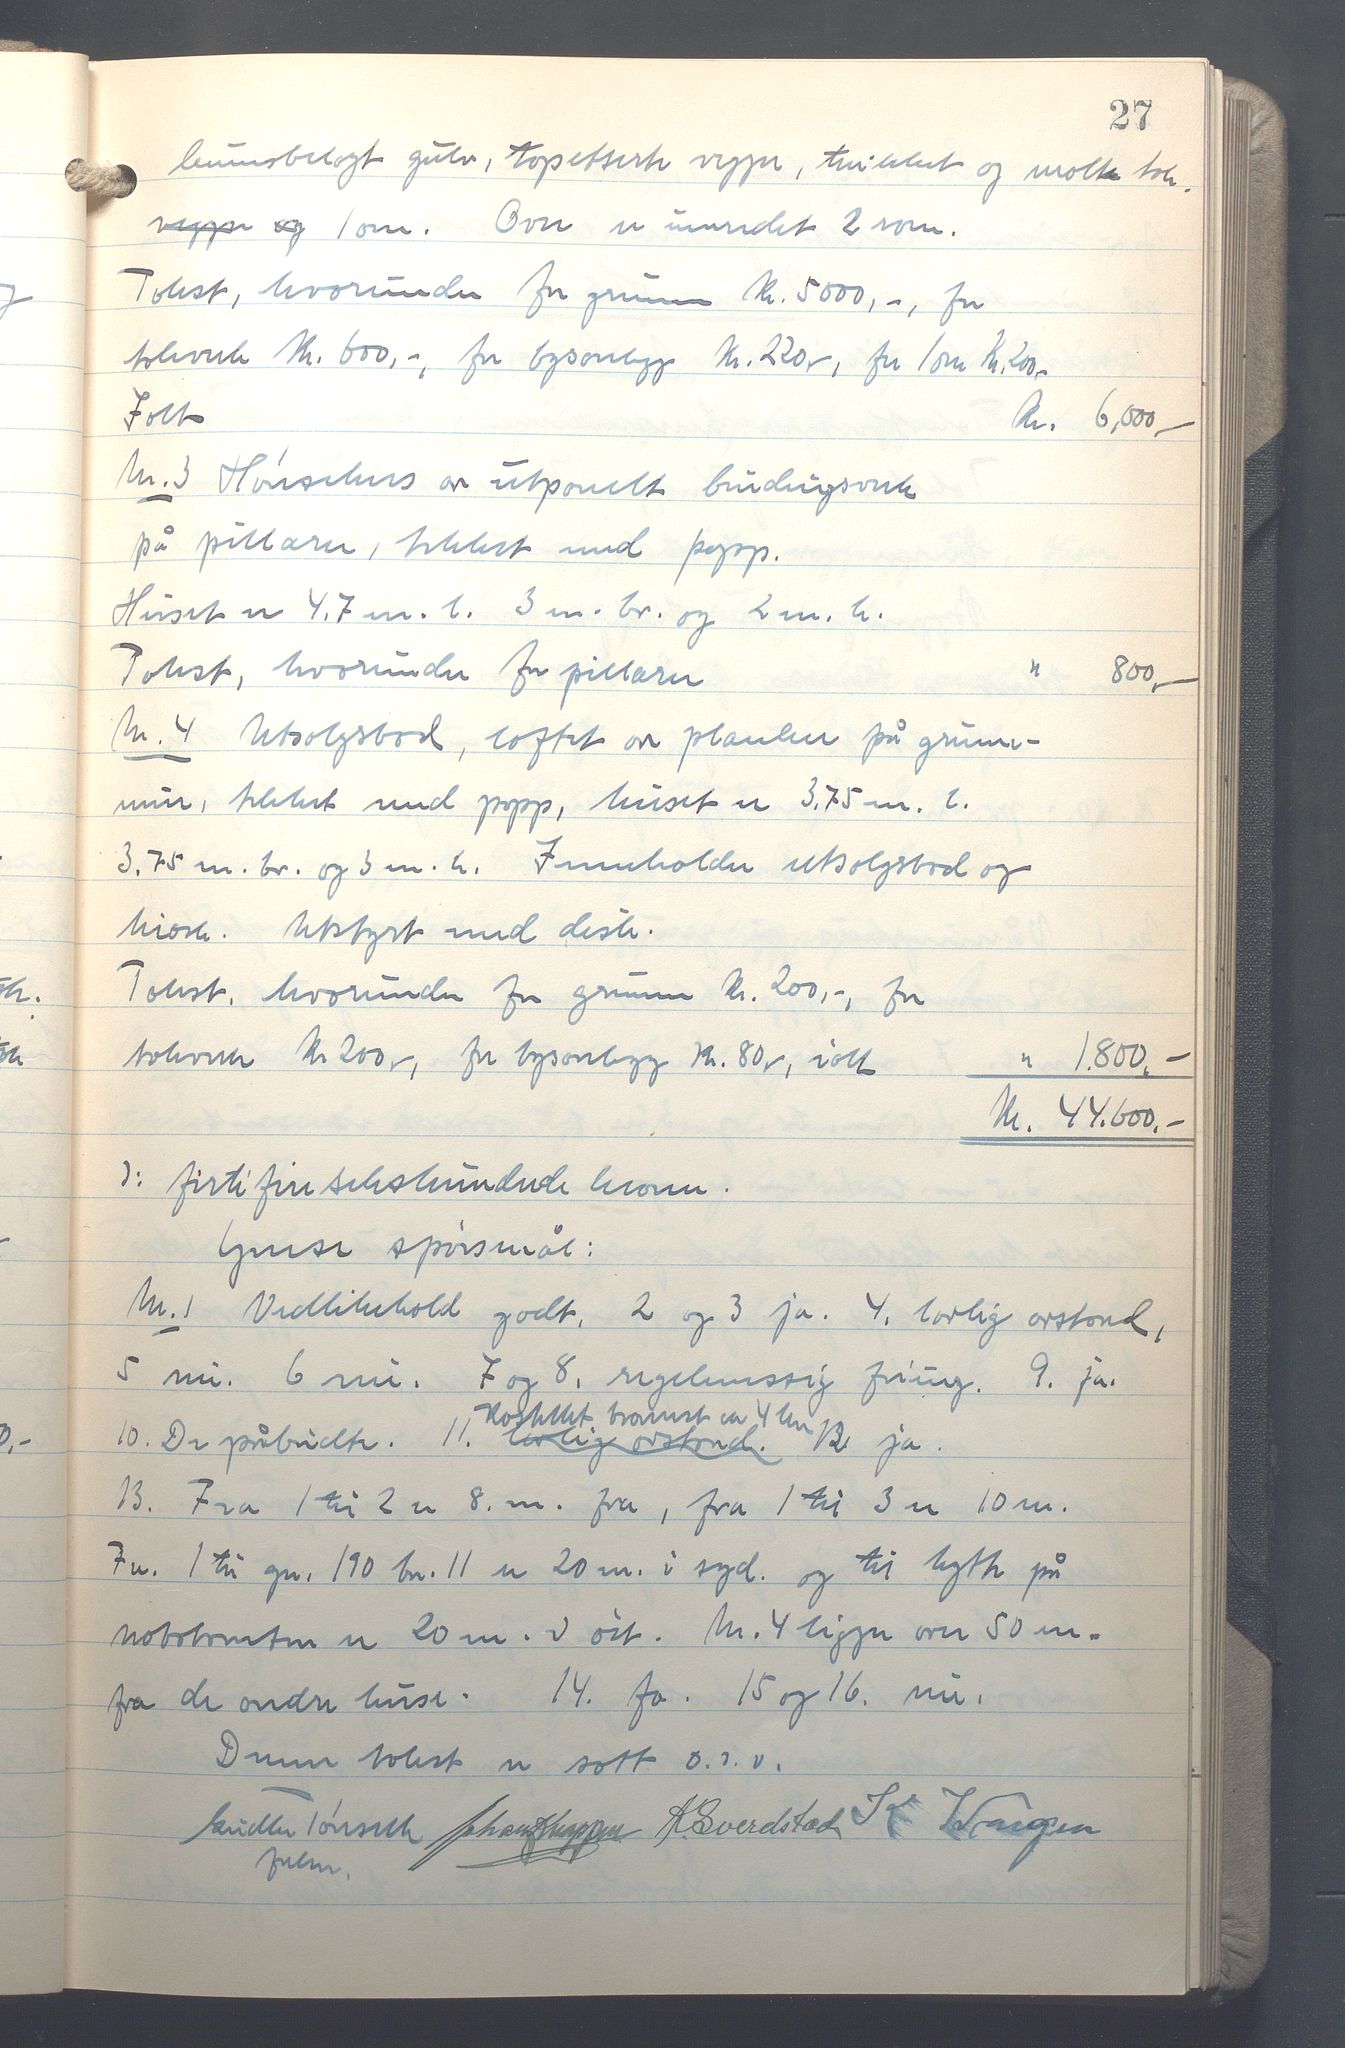 27
leumsbelagt gulv, tapetserte vegger, trukket og malte tak.
vegger og 1 ovn. Over er innredet 2 rom.
Takst, hvorunder for grunn kr. 5000,-, for
takverk kr. 600,-, for lysanlegg kr. 220,-, for 1 ovn kr. 200,-
Ialt kr. 6,000,-
Nr. 3 Hønsehus av utpanelt bindingsverk
på pillarer, tekket med papp.
Huset er 4.7 m. l. 3 m. br. og 2 m. h.
Takst, hvorunder for pillarer " 800,-
Nr. 4 Utsalgsbod, laftet av planker på grunn-
mur, tekket med papp, huset er 3.75 m. l.
3.75 m. br. og 3 m. h. Inneholder utsalgsbod og
kiosk. Utstyrt med disk.
Takst, hvorunder for grunn kr. 200,-, for
takverk kr 200,-, for lysanlegg kr. 80,-, ialt " 1.800,-
Kr. 44.600,-
ɔ: førti fire sekshundrede kroner.
Gjense spørsmål:
Nr. 1 Vedlikehold godt, 2 og 3 ja. 4. lovlig avstand,
5 nei. 6 nei. 7 og 8. regelmessig feiing. 9. ja.
10. De påbudte. 11. lovlig avstand. 12. ja.
13. Fra 1 til 2 er 8. m. fra, fra 1 til 3 er 10 m.
Fra 1 til gn. 190 bn. 11 er 20 m. i syd. og til hytte på
nabotomten er 20 m. i øst. Nr. 4 ligger over 50 m.
fra de andre huse. 14. Ja. 15 og 16. nei.
Denne takst er satt o.s.v.
A. Sverdstad